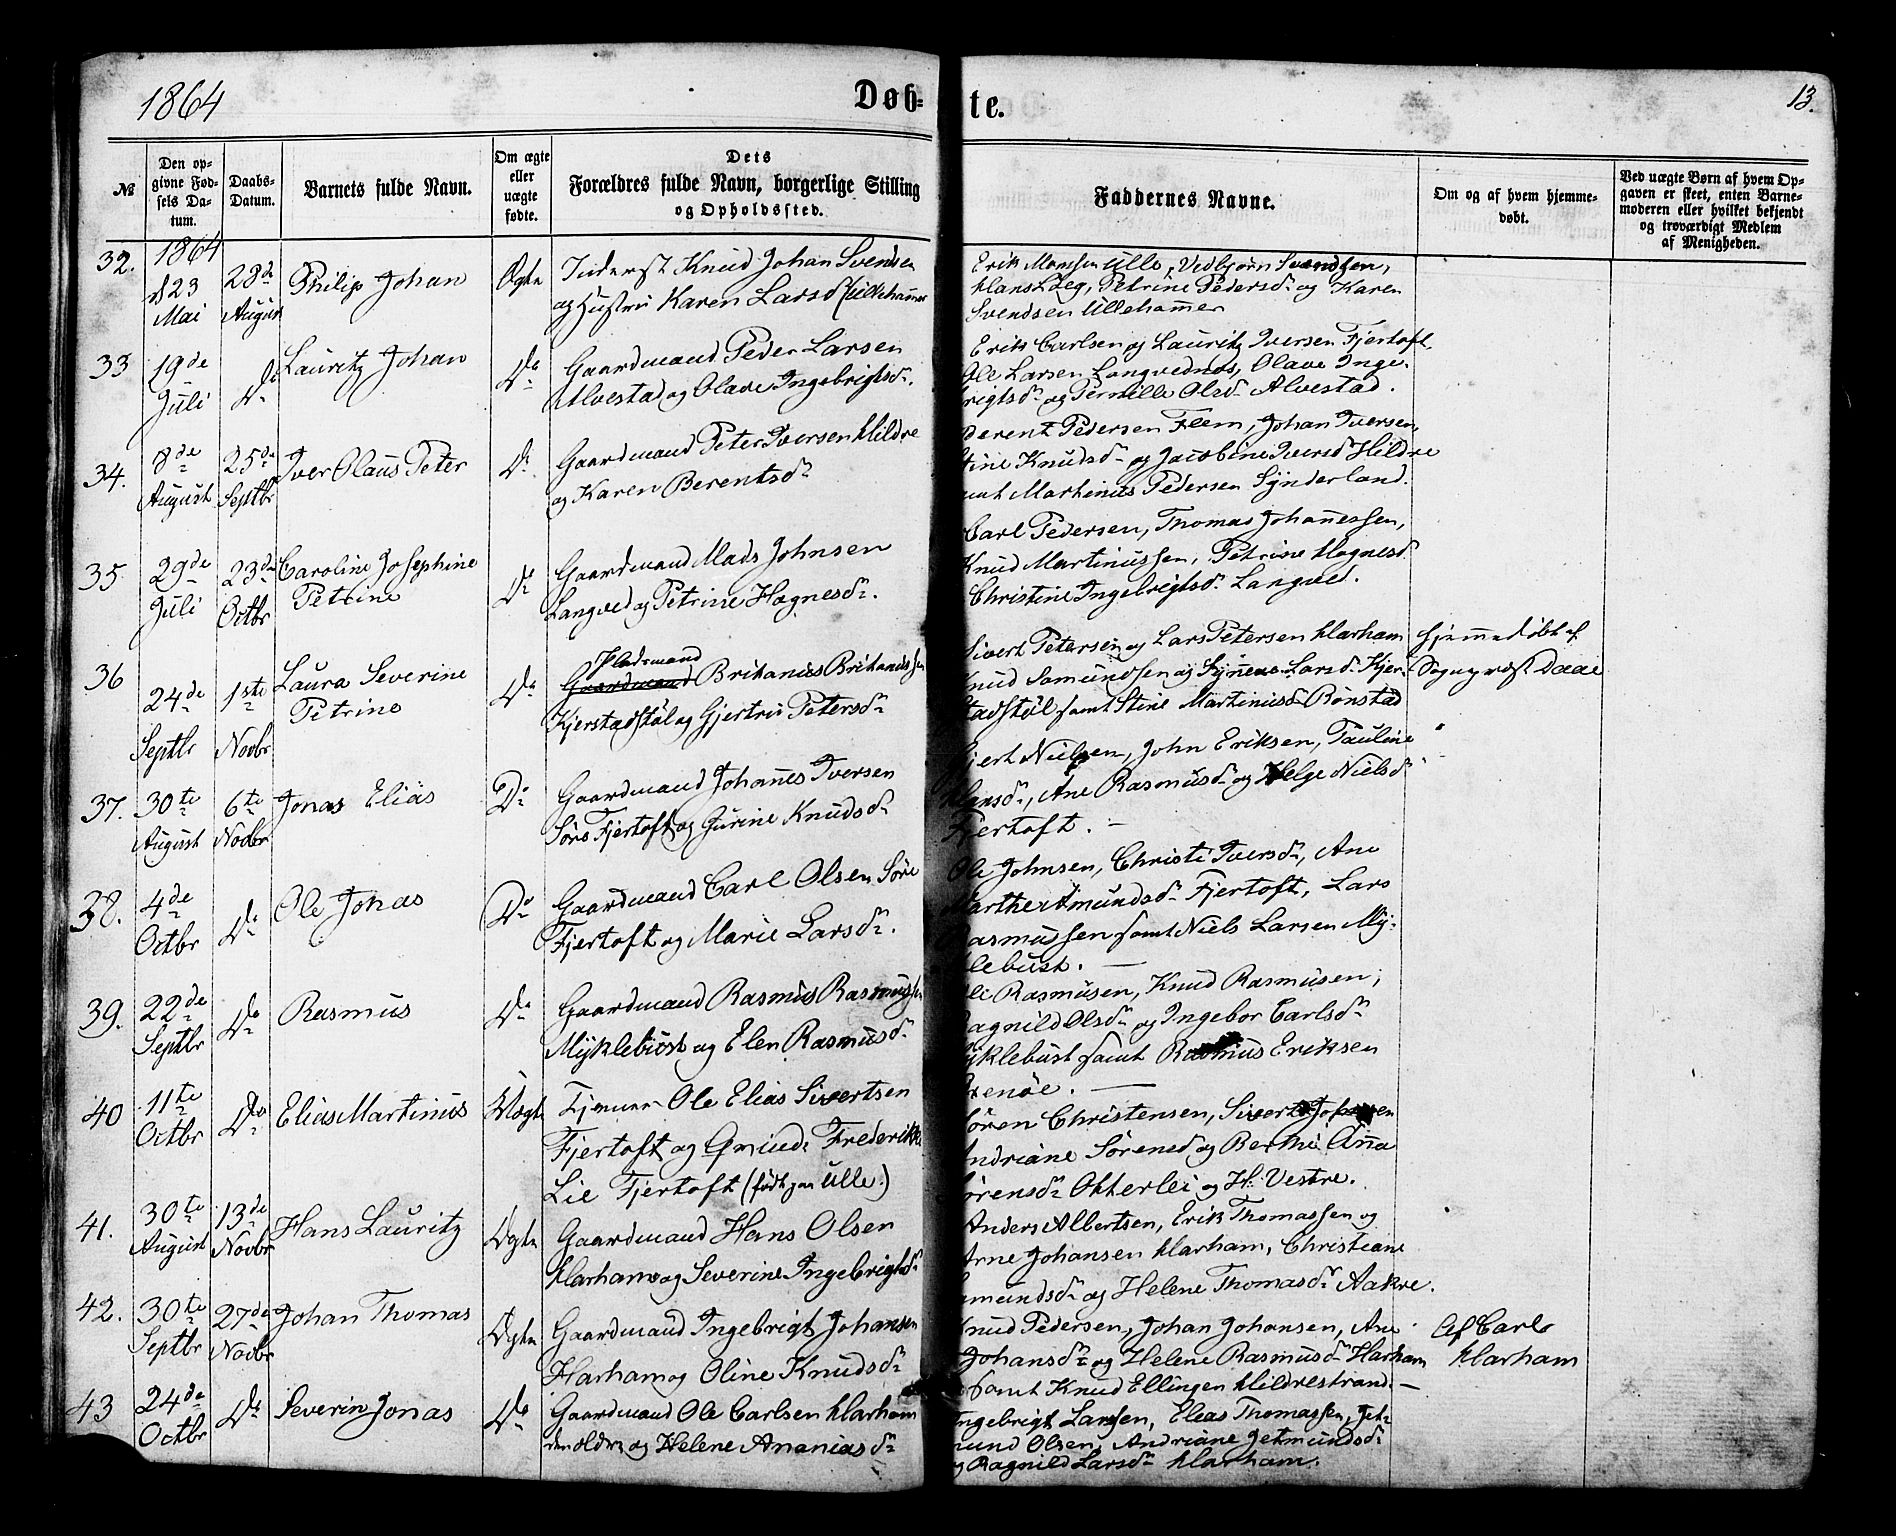 1864
Døb-
te.
13.
№
Den op-
givne Fød-
sels Da-
tum.
Daabs-
Datum.
Barnets fulde Navn.
Om ægte
eller
uægte
fødte.
Dets
Forældres fulde Navn, borgerlige Stilling
og Opholdssted.
Faddernes Navne.
Om og af hvem hjemme-
døbt.
Ved uægte Børn af hvem Op-
gaven er skeet, enten Barne-
moderen eller hvilket bekjendt
og troværdigt Medlem
af Menigheden.
32.
1864
d 23
Mai
28de
August
Philip Johan
Ægte
Inderst Knud Johan Svendsen
og Hustru Karen Larsd Ullehamer
Erik Monsen Ulle, Vedbjørn Svendsen,
Hans Løeg, Petrine Pedersd. og Karen
Svendsen Ullehammer
33
19de
Juli
Do
Lauritz Johan
Do
Gaardmand Peder Larsen
Alvestad og Olave Ingebrigtsd.
Erik Carlsen og Lauritz Iversen Fjertoft
Ole Larsen Langvednes, Olave Inge-
rigtsd og Pernille Olsd Alvestad.
34.
8de
August
25de
Septbr
Iver Olaus Peter
Do
Gaardmand Peter Iversen Hildre
og Karen Berentsd
Berent Pedersen Flem, Johan Iversen,
Stine Knudsd og Jacobine Iversd Hildre
samt Martinus Pedersen Synderland.
35
29de
Juli
23de
Octbr
Caroline Josephine
Petrine
Do
Gaardmand Mads Johnsen
Langved og Petrine Hagnesd.
Carl Pedersen, Thomas Johannessen,
Knud Martinussen, Petrine Hagnesd
Christine Ingebrigtsd Langved.
36
24de
Septbr
1ste
Novbr
Laura Severine
Petrine
Do
Pladsmand
Gaardmand Britanius Britaniussen
Kjerstadstøl og Gjertru Petersd
Sivert Petersen og Lars Petersen Harham
Knud Samundsen og Synneve Larsd Kjer-
stadstøl samt Stine Martinusd Rønstad
Hjemmedøbt af
Sognepræst Daae
37.
30te
August
6te
Novbr
Jonas Elias
Do
Gaardmand Johannes Iversen
Søre Fjertoft og Gurine Knudsd
jert Nielsen, John Eriksen, Pauline
Hansd, Ane Rasmusd og Helge Nielsd
Fjertoft.
38.
4de
Octbr
Do
Ole Jonas
Do
Gaardmand Carl Olsen Søre
Fjertoft og Marie Larsd.
Ole Johnsen, Christi Iversd, Ane
Marthe Amundsd Fjertoft, Lars
Rasmussen samt Niels Larsen My-
klebust.
39.
22de
Septbr
Do
Rasmus
Do
Gaardmand Rasmus Rasmussen
Myklebust og Elen Rasmusd
Rasmusen, Knud Rasmusen,
Ragnild Olsd og Ingebor Carlsd
Myklebust samt Rasmus Eriksen
40
11te
Octbr
Do
Elias Martinus
Uægte
Ole Elias Sivertsen
Fjertoft og Frederikke
Lie Fjertoft (født paa Ulle.)
Søren Christensen, Sivert
Andriane Sørensd og Berthe Anna
Sørensd Otterlei og H. Vestre.
41.
30te
August
13de
Novbr
Hans Lauritz
Ægte
Gaardmand Hans Olsen
Harham og Severine Ingebrigtsd
Anders Albertsen, Erik Thomassen og
Arne Johansen Harham, Christiane
Amundsd og Helene Thomasd Aakre.
42.
30te
Septbr
27de
Novbr
Johan Thomas
Ægte
Gaardmand Ingebrigt Johansen
Harham og Oline Knudsd
Knud Pedersen, Johan Johansen, Ane
Johansd og Helene Rasmusd Harham
samt Knud Ellingen Hildrestrand.
Af Carl
Harham
43
24de
Octbr
Do
Severin Jonas
Do
Gaardmand Ole Carlsen Harham
den ældre og Helene Ananiasd
Ingebrigt Larsen, Elias Thomassen, Jet-
mund Olsen, Andriane Jetmundsd
og Ragnild Larsd Harham.